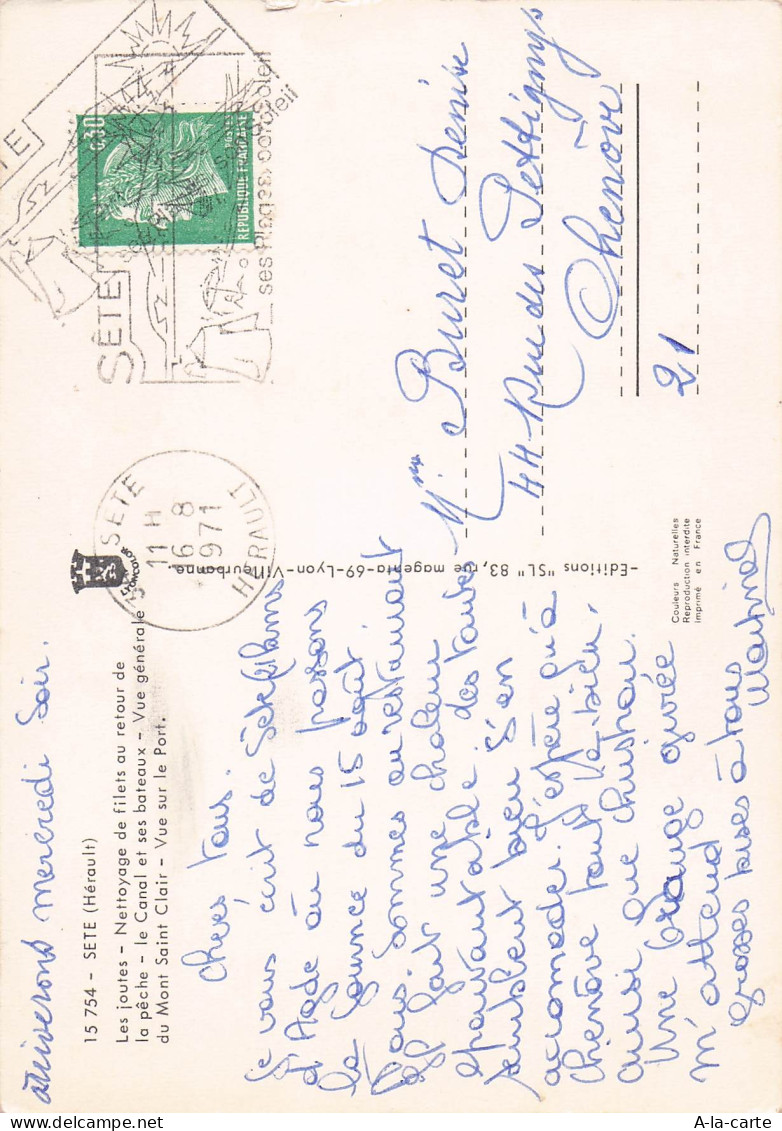 15 754 - SETE (Hérault)
Les joutes - Nettoyage de filets au retour de
la pêche - le Canal et ses bateaux - Vue générale
du Mont Saint Clair - Vue sur le Port.
Chers tous.
Je vous écrit de Sète
d'Agde où nous passons
la journée du 15 août.
Nous sommes au restaurant
il fait une chaleur
épouvantable. des tantes
semblent bien s'en
accomoder. J'espère qu'à
Chenôve tout va bien,
ainsi que christian.
Une orange givrée
m'attend
Grosses bises à tous
Martine
arriverons mercredi soir.
LYONCOLOR
-Editions "SL" 83, rue magenta-69-Lyon-Villeurbanne
Couleurs Naturelles
Reproduction interdite
Imprimé en France
SETE
11 H
16 8
1971
HERAULT
SÈTE
ses plages de soleil
0,30
POSTES
REPUBLIQUE FRANÇAISE
Mme Buret Denise
44 Rue des Pétignys
Chenôve
21
A-la-carte